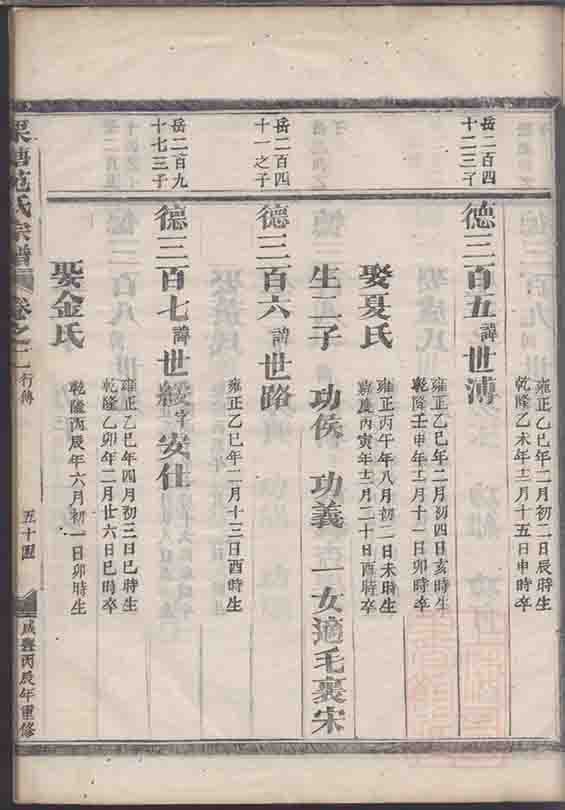 雍正乙巳年二月初二日辰時生
乾隆乙未年三月十五日申時卒
岳二百四
十二三子
德三百五諱世溥
雍正乙巳年二月初四日亥時生
乾隆壬申年十二月十一日卯時卒
娶夏氏
雍正丙午年八月初二日未時生
嘉慶丙寅年十二月二十日酉時卒
生二子 功侯 功義 一女適毛裏宋
岳二百四
十一之子
德三百六諱世路
雍正乙巳年二月十三日酉時生
岳二百九
十七三子
德三百七諱世綬字安仕
雍正乙巳年四月初三日巳時生
乾隆乙卯年二月廿六日巳時卒
娶金氏
乾隆丙辰年六月初一日卯時生
范氏宗譜 卷之二 行傳 五十四 咸豐丙辰年重修